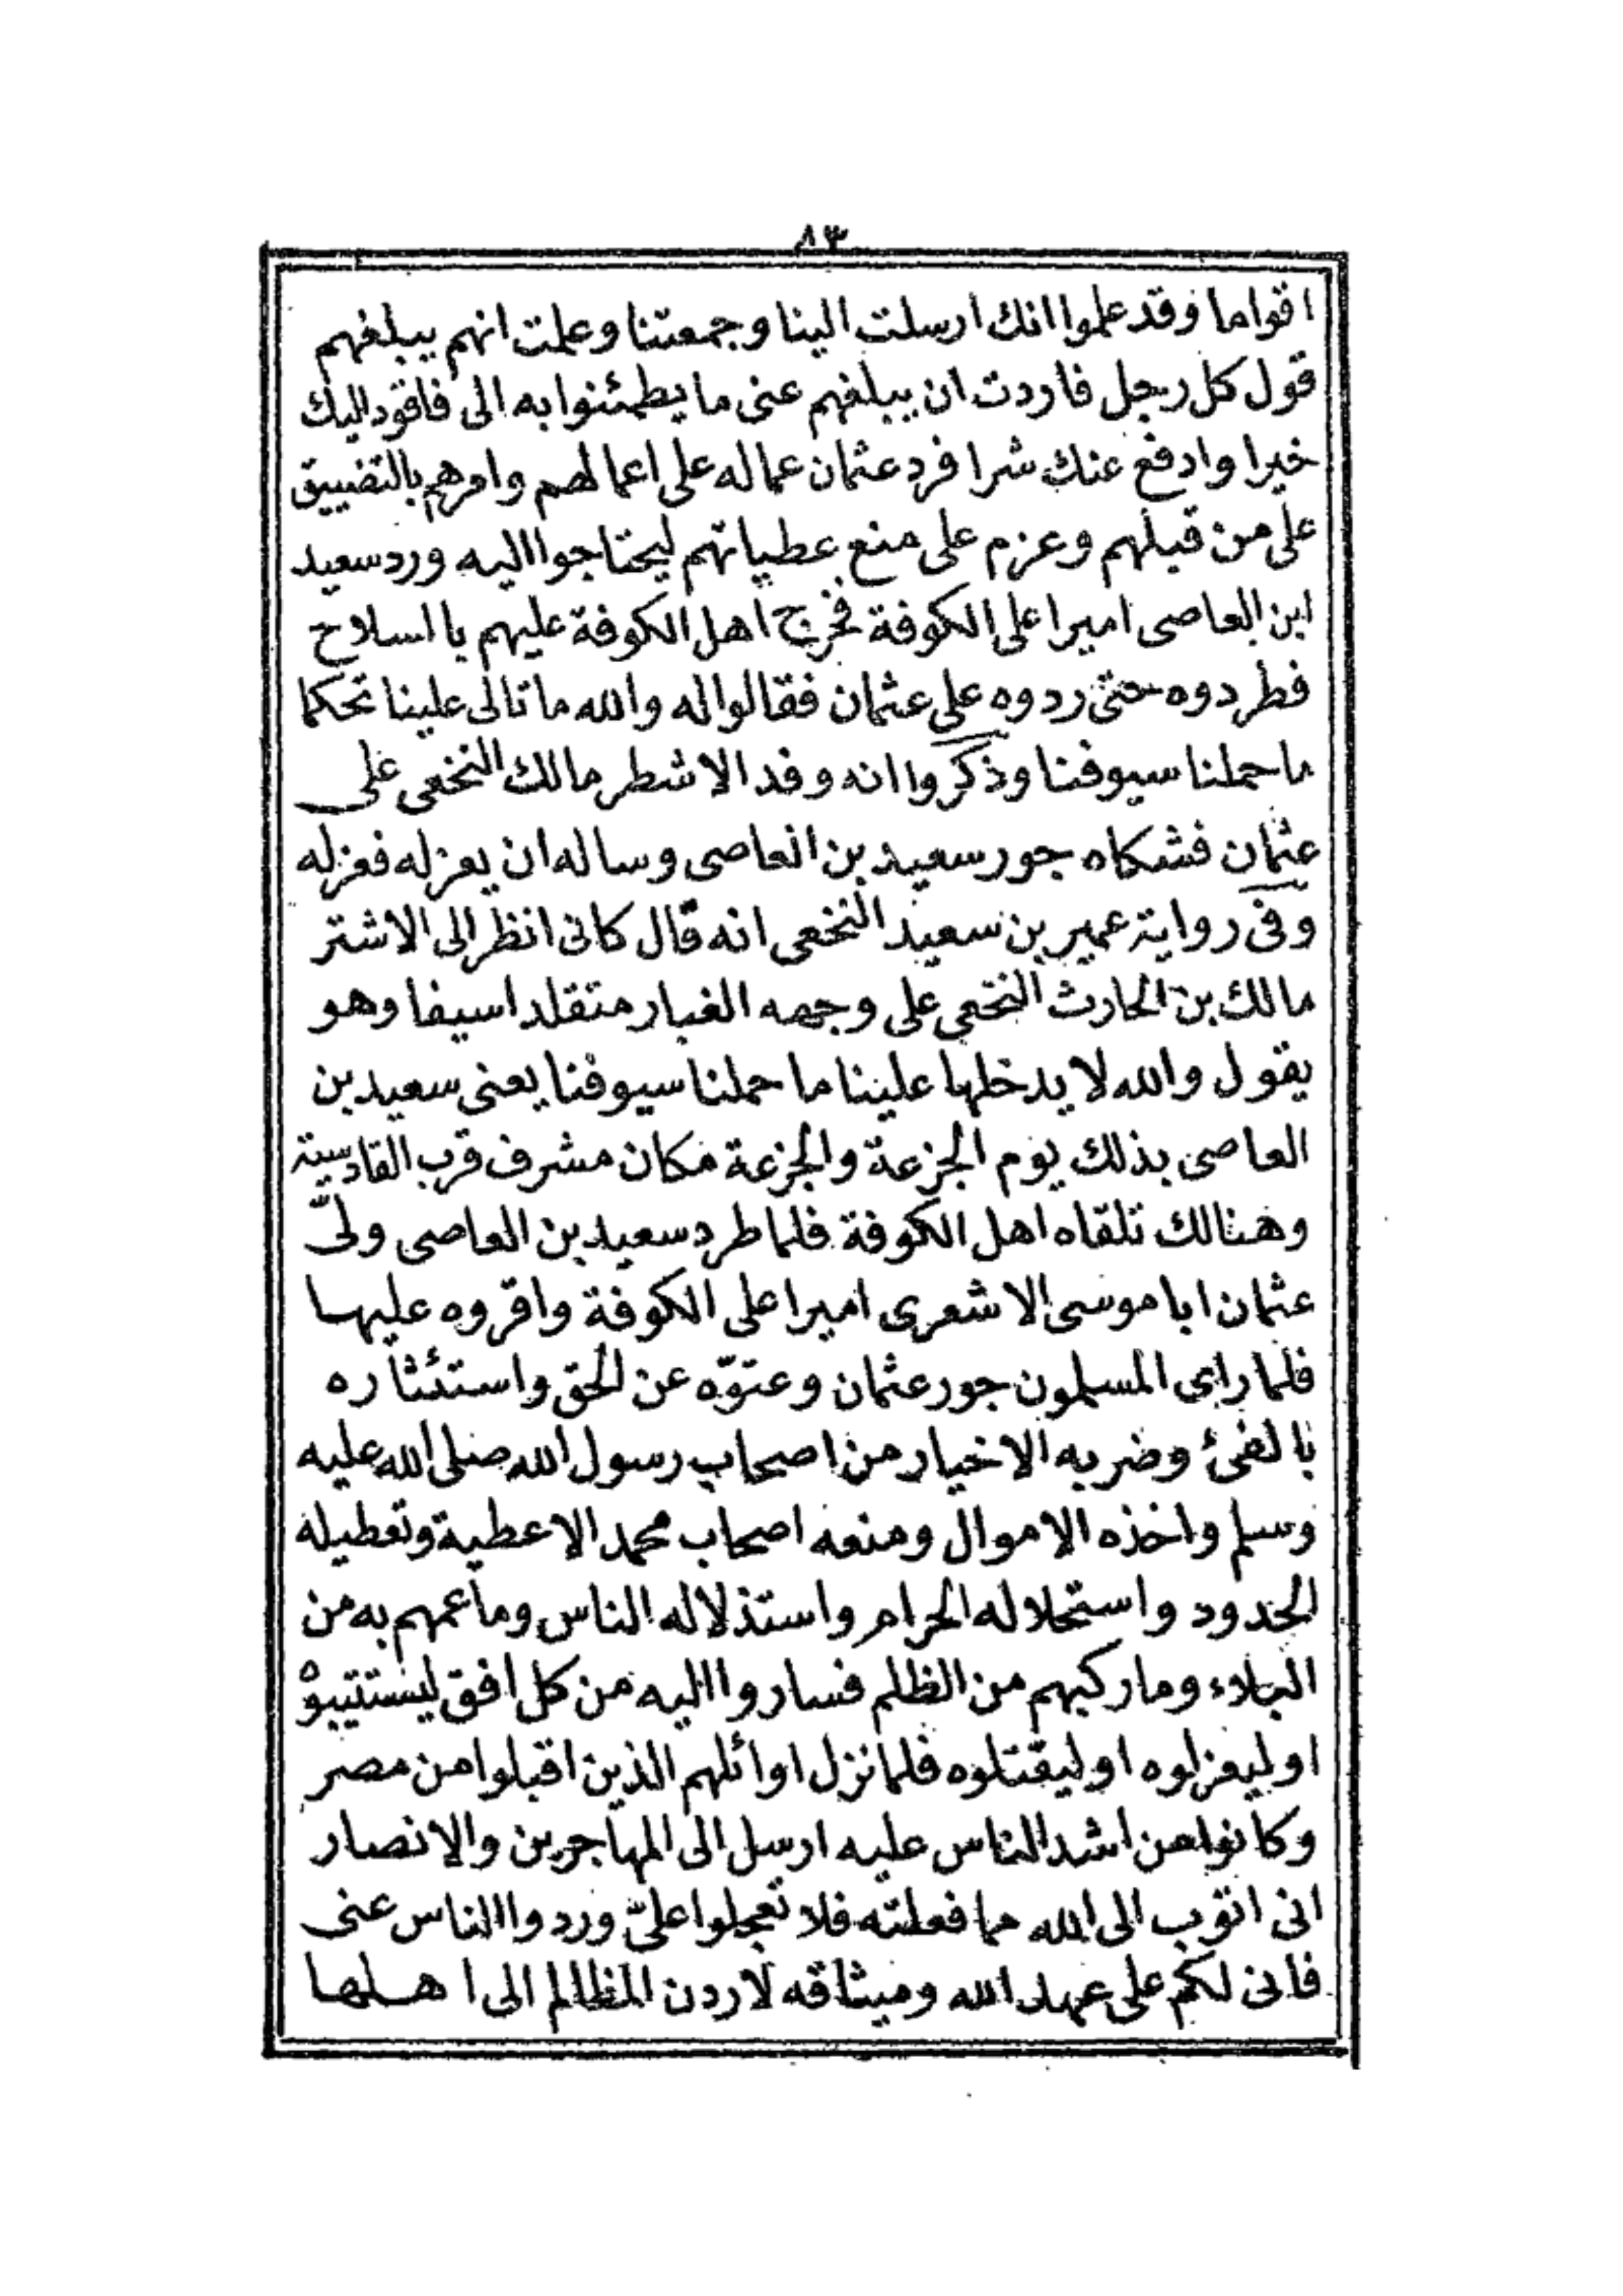 ٨٣
اقواما وقد علموا انك ارسلت الينا وجمعتنا وعلمت انهم يبلغهم
قول كل رجل فاردت ان يبلغهم عنى ما يطمئنوا به الى فاقود اليك
خيرا وادفع عنك شرا فرد عثمان عماله على اعمالهم وامرهم بالتضييق
على من قبلهم وعزم على منع عطياتهم ليحتاجوا اليه ورد سعيد
ابن العاصى اميرا على الكوفة فخرج اهل الكوفة عليهم با السلاح
فطردوه حتى ردوه على عثمان فقالوا له والله ما تالى علينا تحكما
ما حملنا سيوفنا وذكروا انه وفد الاشطر مالك النخعى على
عثمان فشكاه جور سعيد بن العاصى وساله ان يعزله فعزله
وفى رواية عمير بن سعيد النخعى انه قال كانى انظر الى الاشتر
مالك بن الحارث النخعى على وجهه الغبار متقلدا سيفا وهو
يقول والله لا يدخلها علينا ما حملنا سيوفنا يعنى سعيد بن
العاصى بذلك يوم الجزعة والجزعة مكان مشرف قرب القادسية
وهنالك تلقاه اهل الكوفة فلما طرد سعيد بن العاصى ولىّ
عثمان ابا موسى الاشعرى اميرا على الكوفة واقروه عليها
فلما راى المسلمون جور عثمان وعتوّه عن الحق واستئثاره
بالفئ وضربه الاخيار من اصحاب رسول الله صلى الله عليه
وسلم واخذه الاموال ومنعه اصحاب محمد الاعطية وتعطيله
الحدود واستحلاله الحرام واستذلاله الناس وما عمهم به من
البلاء وما ركبهم من الظلم فساروا اليه من كل افق ليستتيبوه
او ليعزلوه او ليقتلوه فلما نزل اوائلهم الذين اقبلوا من مصر
وكانوا من اشد الناس عليه ارسل الى المهاجرين والانصار
انى اتوب الى الله مما فعلته فلا تعجلوا علىّ وردوا الناس عنى
فانى لكم على عهد الله وميثاقه لاردن المظالم الى اهلها